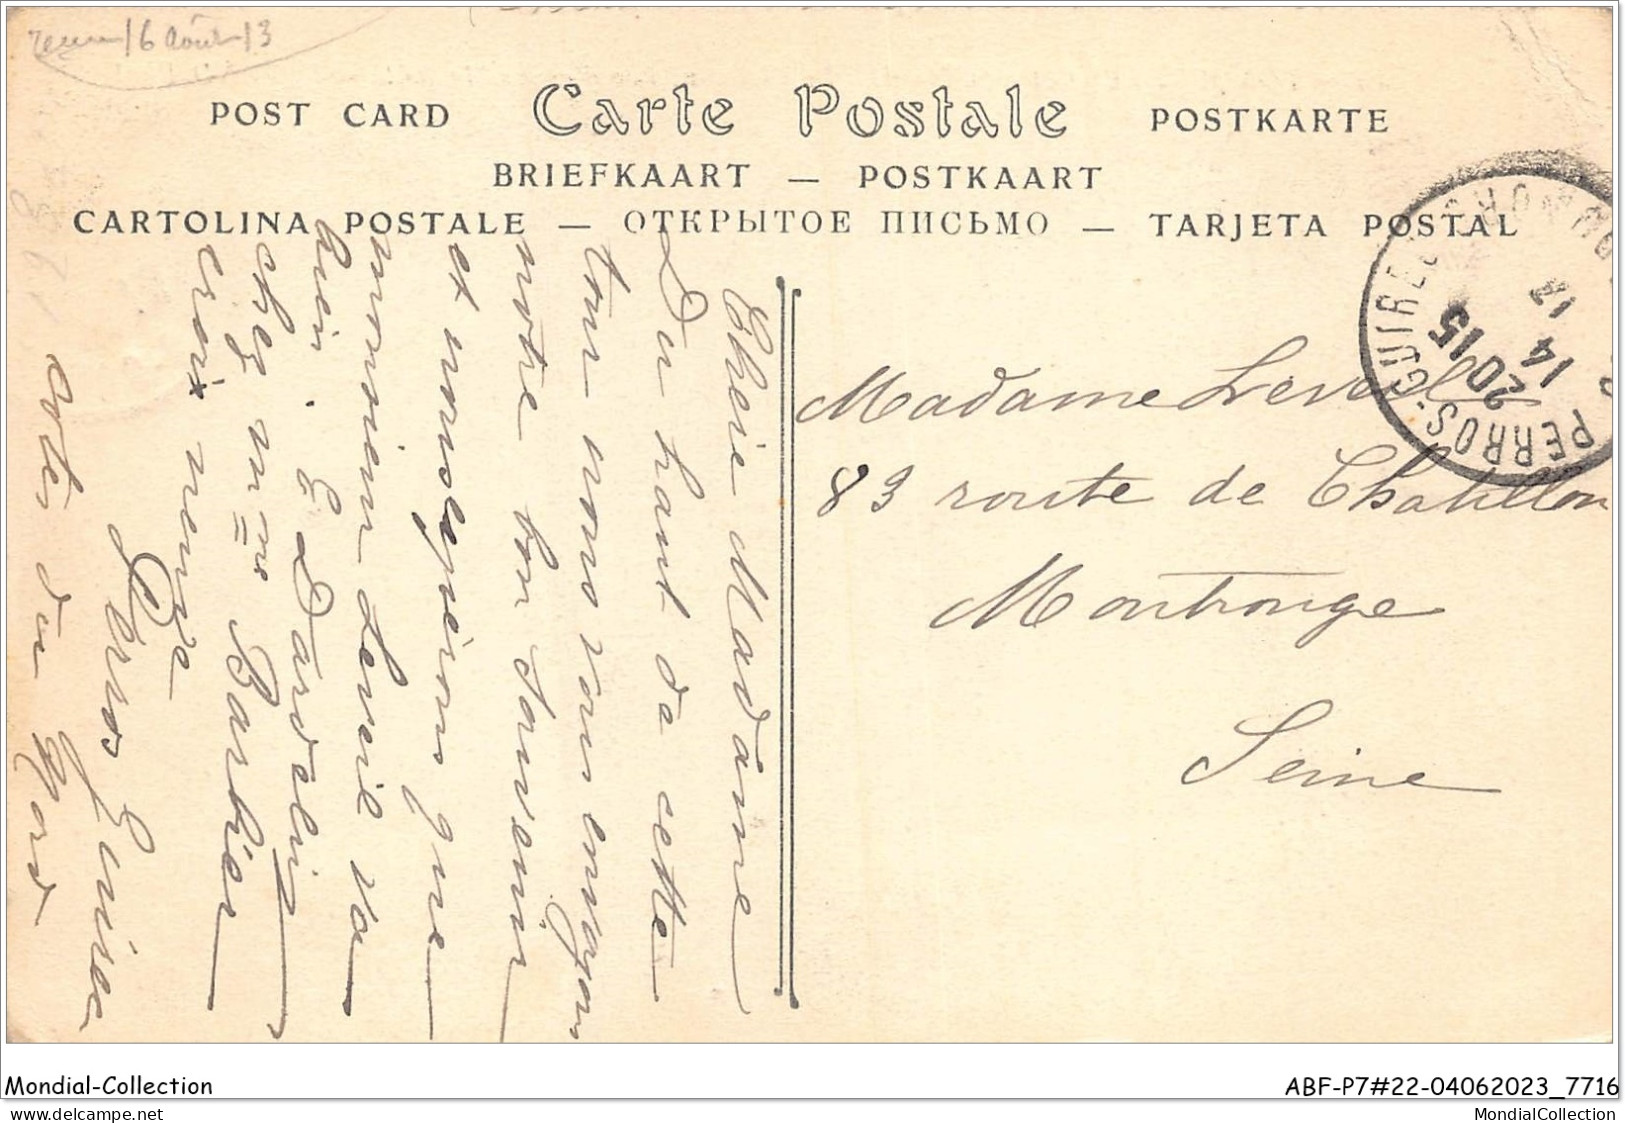 16 Août 13
POST CARD Carte Postale POSTKARTE
BRIEFKAART — POSTKAART
CARTOLINA POSTALE — ОТКРЫТОЕ ПИСЬМО — TARJETA POSTAL
PERROS-GUIREC
20 15
14
Chère Madame
Du haut de cette
tour nous vous envoyons
notre bon souvenir
et nous espérons que
monsieur Leveil va
bien. E Dardelin
chez mme Barbier
croix
Perros Guirec
cotes du Nord
Madame Leveil
83 route de Chatillon
Montrouge
Seine
Mondial-Collection
ABF-P7#22-04062023_7716
delcampe.net
MondialCollection